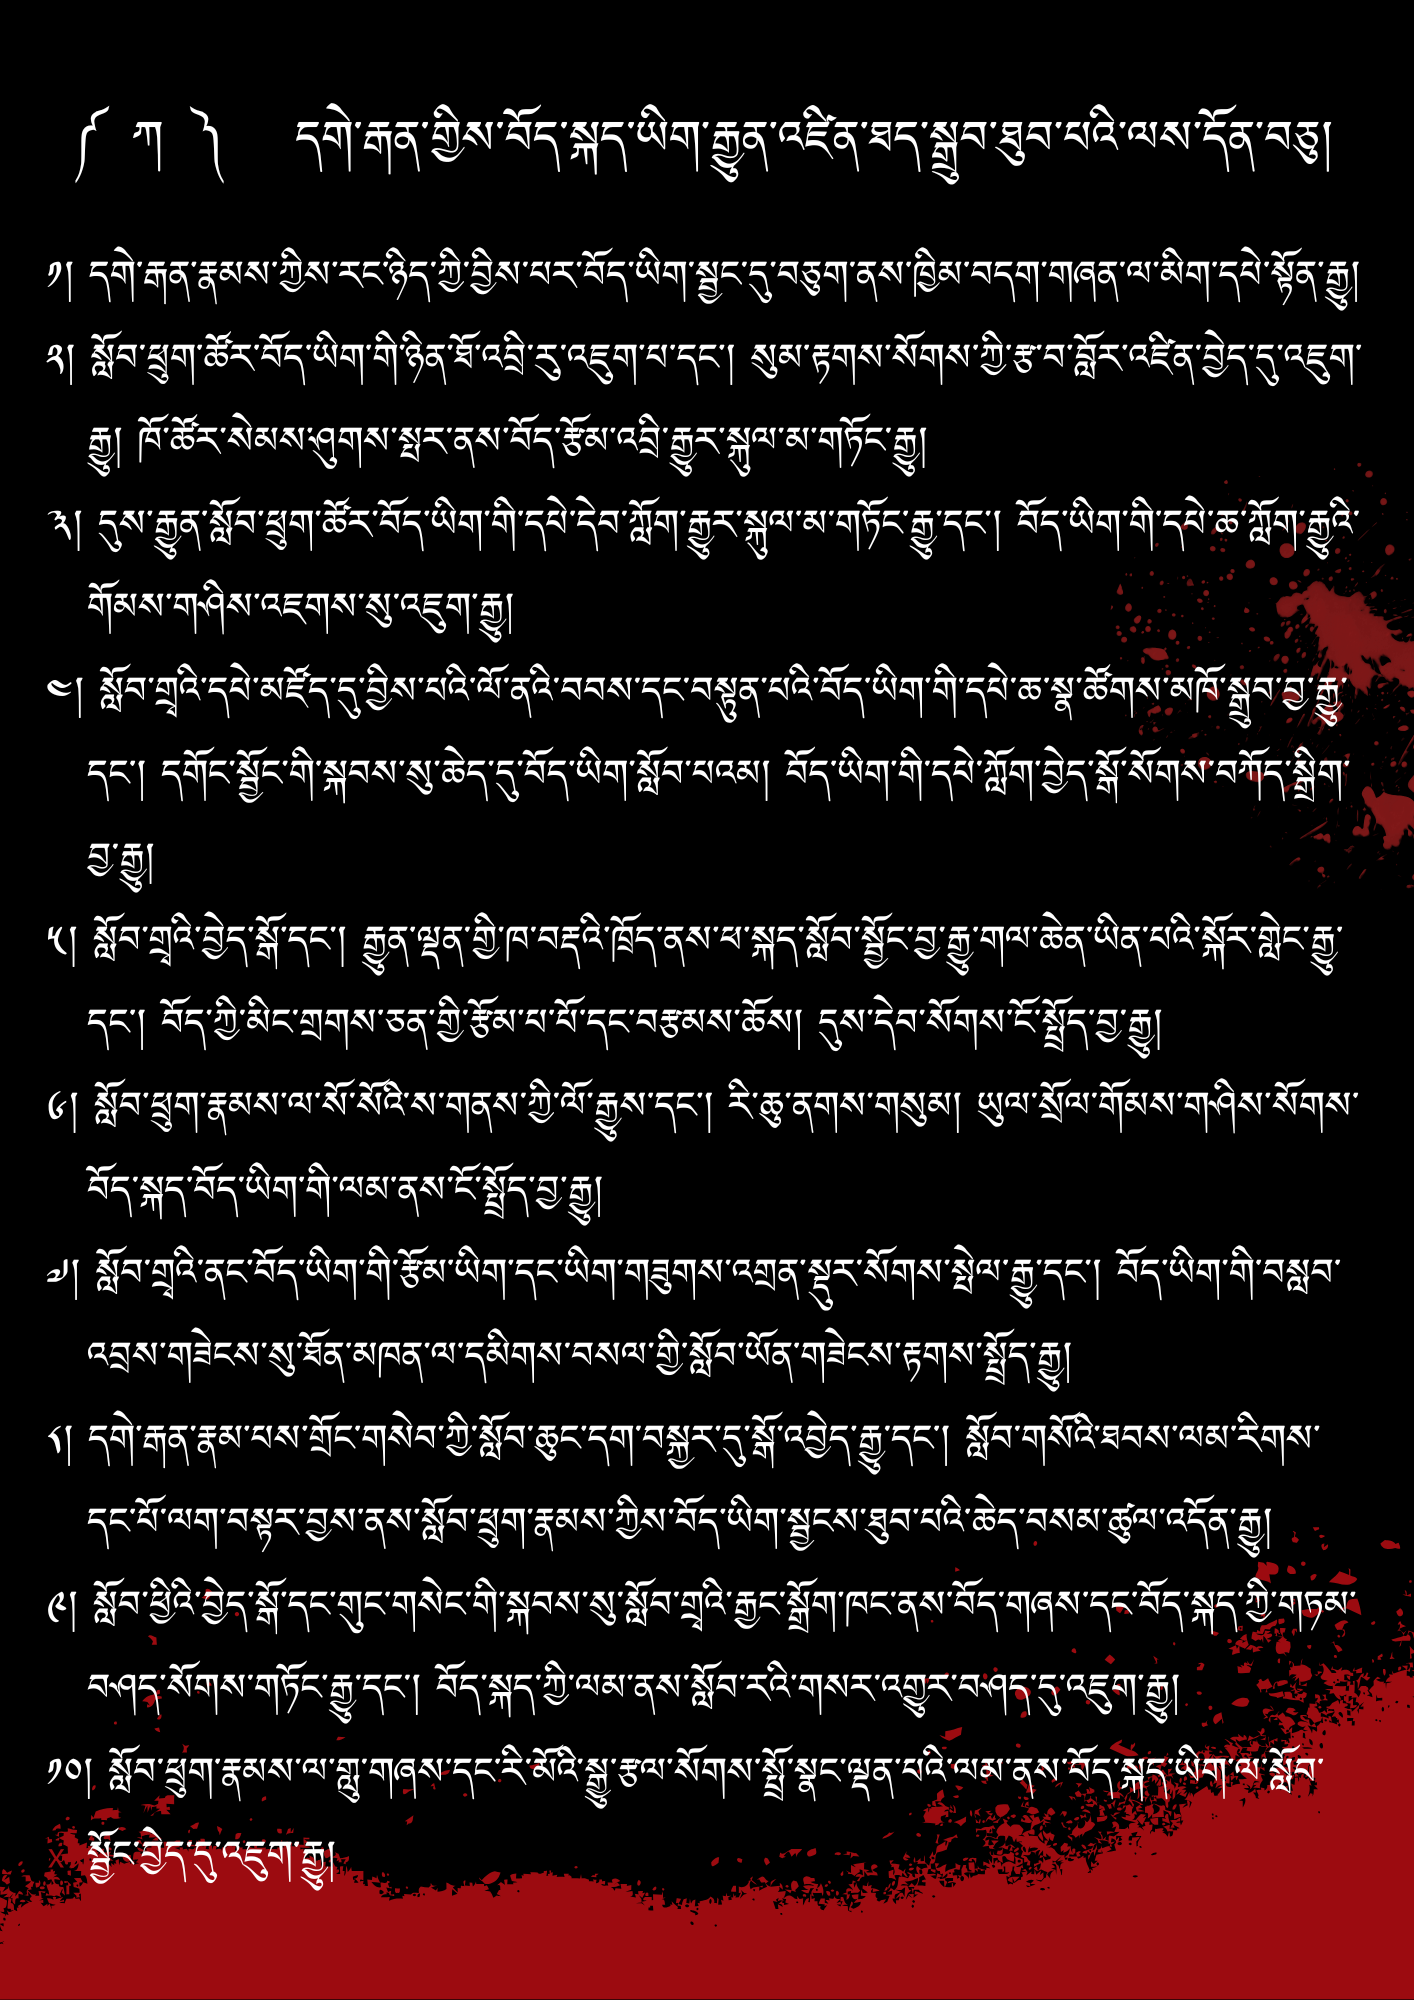 ༼ ཀ ༽ དགེ་རྒན་གྱིས་བོད་སྐད་ཡིག་རྒྱུན་འཛིན་ཐད་སྒྲུབ་ཐུབ་པའི་ལས་དོན་བཅུ།
༡། དགེ་རྒན་རྣམས་ཀྱིས་རང་ཉིད་ཀྱི་བྱིས་པར་བོད་ཡིག་སྦྱང་དུ་བཅུག་ནས་ཁྱིམ་བདག་གཞན་ལ་མིག་དཔེ་སྟོན་རྒྱུ།
༢། སློབ་ཕྲུག་ཚོར་བོད་ཡིག་གི་ཉིན་ཐོ་འབྲི་རུ་འཇུག་པ་དང་། སུམ་རྟགས་སོགས་ཀྱི་རྩ་བ་བློར་འཛིན་བྱེད་དུ་འཇུག་
རྒྱུ། ཁོ་ཚོར་སེམས་ཤུགས་སྤར་ནས་བོད་རྩོམ་འབྲི་རྒྱུར་སྐུལ་མ་གཏོང་རྒྱུ།
༣། དུས་རྒྱུན་སློབ་ཕྲུག་ཚོར་བོད་ཡིག་གི་དཔེ་དེབ་ཀློག་རྒྱུར་སྐུལ་མ་གཏོང་རྒྱུ་དང་། བོད་ཡིག་གི་དཔེ་ཆ་ཀློག་རྒྱུའི་
གོམས་གཤིས་འཇགས་སུ་འཇུག་རྒྱུ།
༤། སློབ་གྲྭའི་དཔེ་མཛོད་དུ་བྱིས་པའི་ལོ་ནའི་བབས་དང་བསྟུན་པའི་བོད་ཡིག་གི་དཔེ་ཆ་སྣ་ཚོགས་མཁོ་སྒྲུབ་བྱ་རྒྱུ་
དང་། དགོང་སྦྱོང་གི་སྐབས་སུ་ཆེད་དུ་བོད་ཡིག་སློབ་པའམ། བོད་ཡིག་གི་དཔེ་ཀློག་བྱེད་སྒོ་སོགས་བཀོད་སྒྲིག་
བྱ་རྒྱུ།
༥། སློབ་གྲྭའི་བྱེད་སྒོ་དང་། རྒྱུན་ལྡན་གྱི་ཁ་བརྡའི་ཁྲོད་ནས་ཕ་སྐད་སློབ་སྦྱོང་བྱ་རྒྱུ་གལ་ཆེན་ཡིན་པའི་སྐོར་གླེང་རྒྱུ་
དང་། བོད་ཀྱི་མིང་གྲགས་ཅན་གྱི་རྩོམ་པ་པོ་དང་བརྩམས་ཆོས། དུས་དེབ་སོགས་ངོ་སྤྲོད་བྱ་རྒྱུ།
༦། སློབ་ཕྲུག་རྣམས་ལ་སོ་སོའི་ས་གནས་ཀྱི་ལོ་རྒྱུས་དང་། རི་ཆུ་ནགས་གསུམ། ཡུལ་སྲོལ་གོམས་གཤིས་སོགས་
བོད་སྐད་བོད་ཡིག་གི་ལམ་ནས་ངོ་སྤྲོད་བྱ་རྒྱུ།
༧། སློབ་གྲྭའི་ནང་བོད་ཡིག་གི་རྩོམ་ཡིག་དང་ཡིག་གཟུགས་འགྲན་སྡུར་སོགས་སྤེལ་རྒྱུ་དང་། བོད་ཡིག་གི་བསླབ་
འབྲས་གཟེངས་སུ་ཐོན་མཁན་ལ་དམིགས་བསལ་གྱི་སློབ་ཡོན་གཟེངས་རྟགས་སྤྲོད་རྒྱུ།
༨། དགེ་རྒན་རྣམ་པས་གྲོང་གསེབ་ཀྱི་སློབ་ཆུང་དག་བསྐྱར་དུ་སྒོ་འབྱེད་རྒྱུ་དང་། སློབ་གསོའི་ཐབས་ལམ་རིགས་
དང་པོ་ལག་བསྟར་བྱས་ནས་སློབ་ཕྲུག་རྣམས་ཀྱིས་བོད་ཡིག་སྦྱངས་ཐུབ་པའི་ཆེད་བསམ་ཚུལ་འདོན་རྒྱུ།
༩། སློབ་ཕྱིའི་བྱེད་སྒོ་དང་གུང་གསེང་གི་སྐབས་སུ་སློབ་གྲྭའི་རྒྱང་སྒྲོག་ཁང་ནས་བོད་གཞས་དང་བོད་སྐད་ཀྱི་གཏམ་
བཤད་སོགས་གཏོང་རྒྱུ་དང་། བོད་སྐད་ཀྱི་ལམ་ནས་སློབ་རའི་གསར་འགྱུར་བཤད་དུ་འཇུག་རྒྱུ།
༡༠། སློབ་ཕྲུག་རྣམས་ལ་གླུ་གཞས་དང་རི་མོའི་སྒྱུ་རྩལ་སོགས་སྤྲོ་སྣང་ལྡན་པའི་ལམ་ནས་བོད་སྐད་ཡིག་ལ་སློབ་
སྦྱོང་བྱེད་དུ་འཇུག་རྒྱུ།